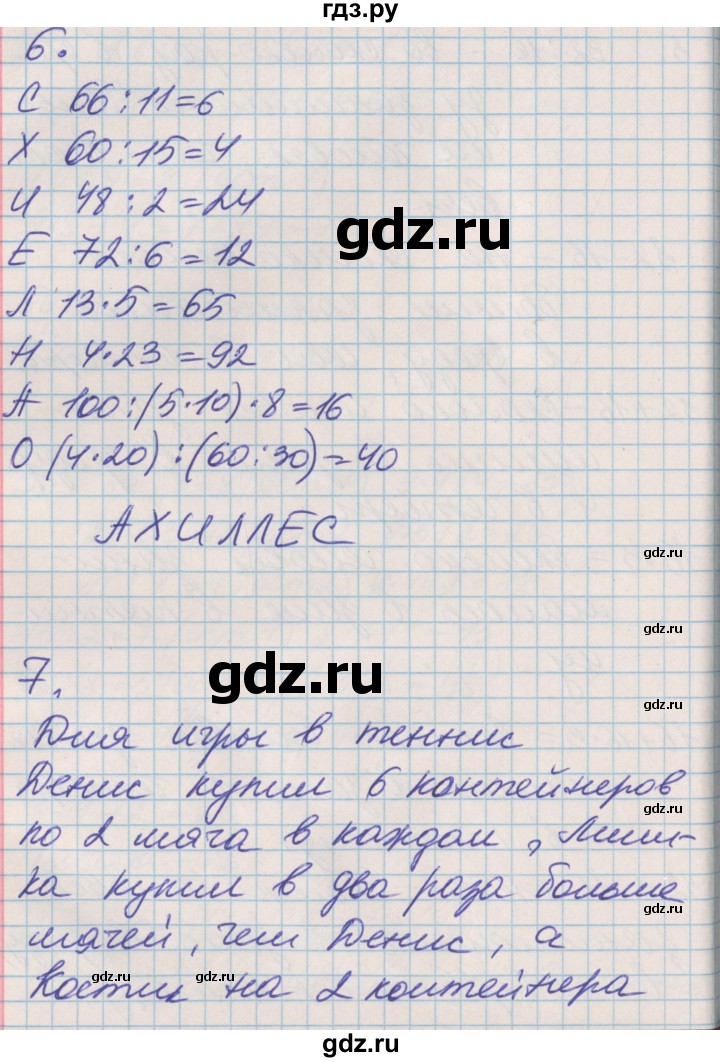 гдз.ру
6.
С 66:11=6
Х 60:15=4
И 48:2=24
gdz.ru
Е 72:6=12
Л 13·5=65
Н 4·23=92
А 100:(5·10)·8=16
О (4·20):(60:30)=40
АХИЛЛЕС
gdz.ru
gdz.ru
gdz.ru
7.
Для игры в теннис
Денис купил 6 контейнеров
gdz.ru
по 2 мяча в каждом, Миш-
ка купил в два раза больше
gdz.ru
мячей, чем Денис, а
gdz.ru
Костик на 2 контейнера
gdz.ru
gdz.ru